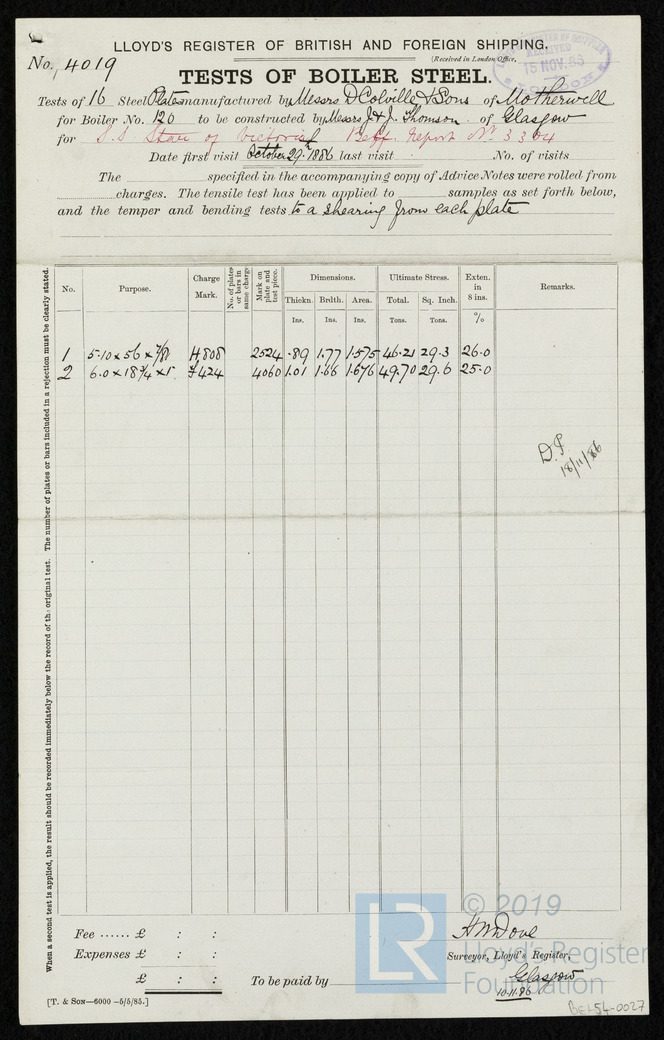 LLOYD'S REGISTER OF BRITISH AND FOREIGN SHIPPING.
No. 4019
(Received in London Office,
RECEIVED
15 NOV. 86
TESTS OF BOILER STEEL.
Tests of 16 Steel Plates manufactured by Messrs D Colville & Sons of Motherwell
for Boiler No. 120 to be constructed by Messrs J & J. Thomson of Glasgow
for S.S. Star of Victoria Belf. Report No 3304
Date first visit October 29th 1886 last visit No. of visits
The specified in the accompanying copy of Advice Notes were rolled from
charges. The tensile test has been applied to samples as set forth below,
and the temper and bending tests to a shearing from each plate
When a second test is applied, the result should be recorded immediately below the record of the original test. The number of plates or bars included in a rejection must be clearly stated.
No. Purpose. Charge Mark. No. of plates or bars in same charge Mark on plate and test piece. Dimensions. Ultimate Stress. Exten. in 8 ins. Remarks.
Thickn. Brdth. Area. Total. Sq. Inch.
Ins. Ins. Ins. Tons. Tons. %
1 5.10 x 56 x 7/8 H808 2524 .89 1.77 1.575 46.21 29.3 26.0
2 6.0 x 18 3/4 x 1" 424 4060 1.01 1.66 1.676 49.70 29.6 25.0
D.P
18/11/86
Fee ...... £ : :
Expenses £ : :
£ : :
To be paid by
H M Dove
Surveyor, Lloyd's Register,
Glasgow
10.11.86
[T. & Son—6000 —5/5/85.]
LR
© 2019
Lloyd's Register
Foundation
BEL54-0027